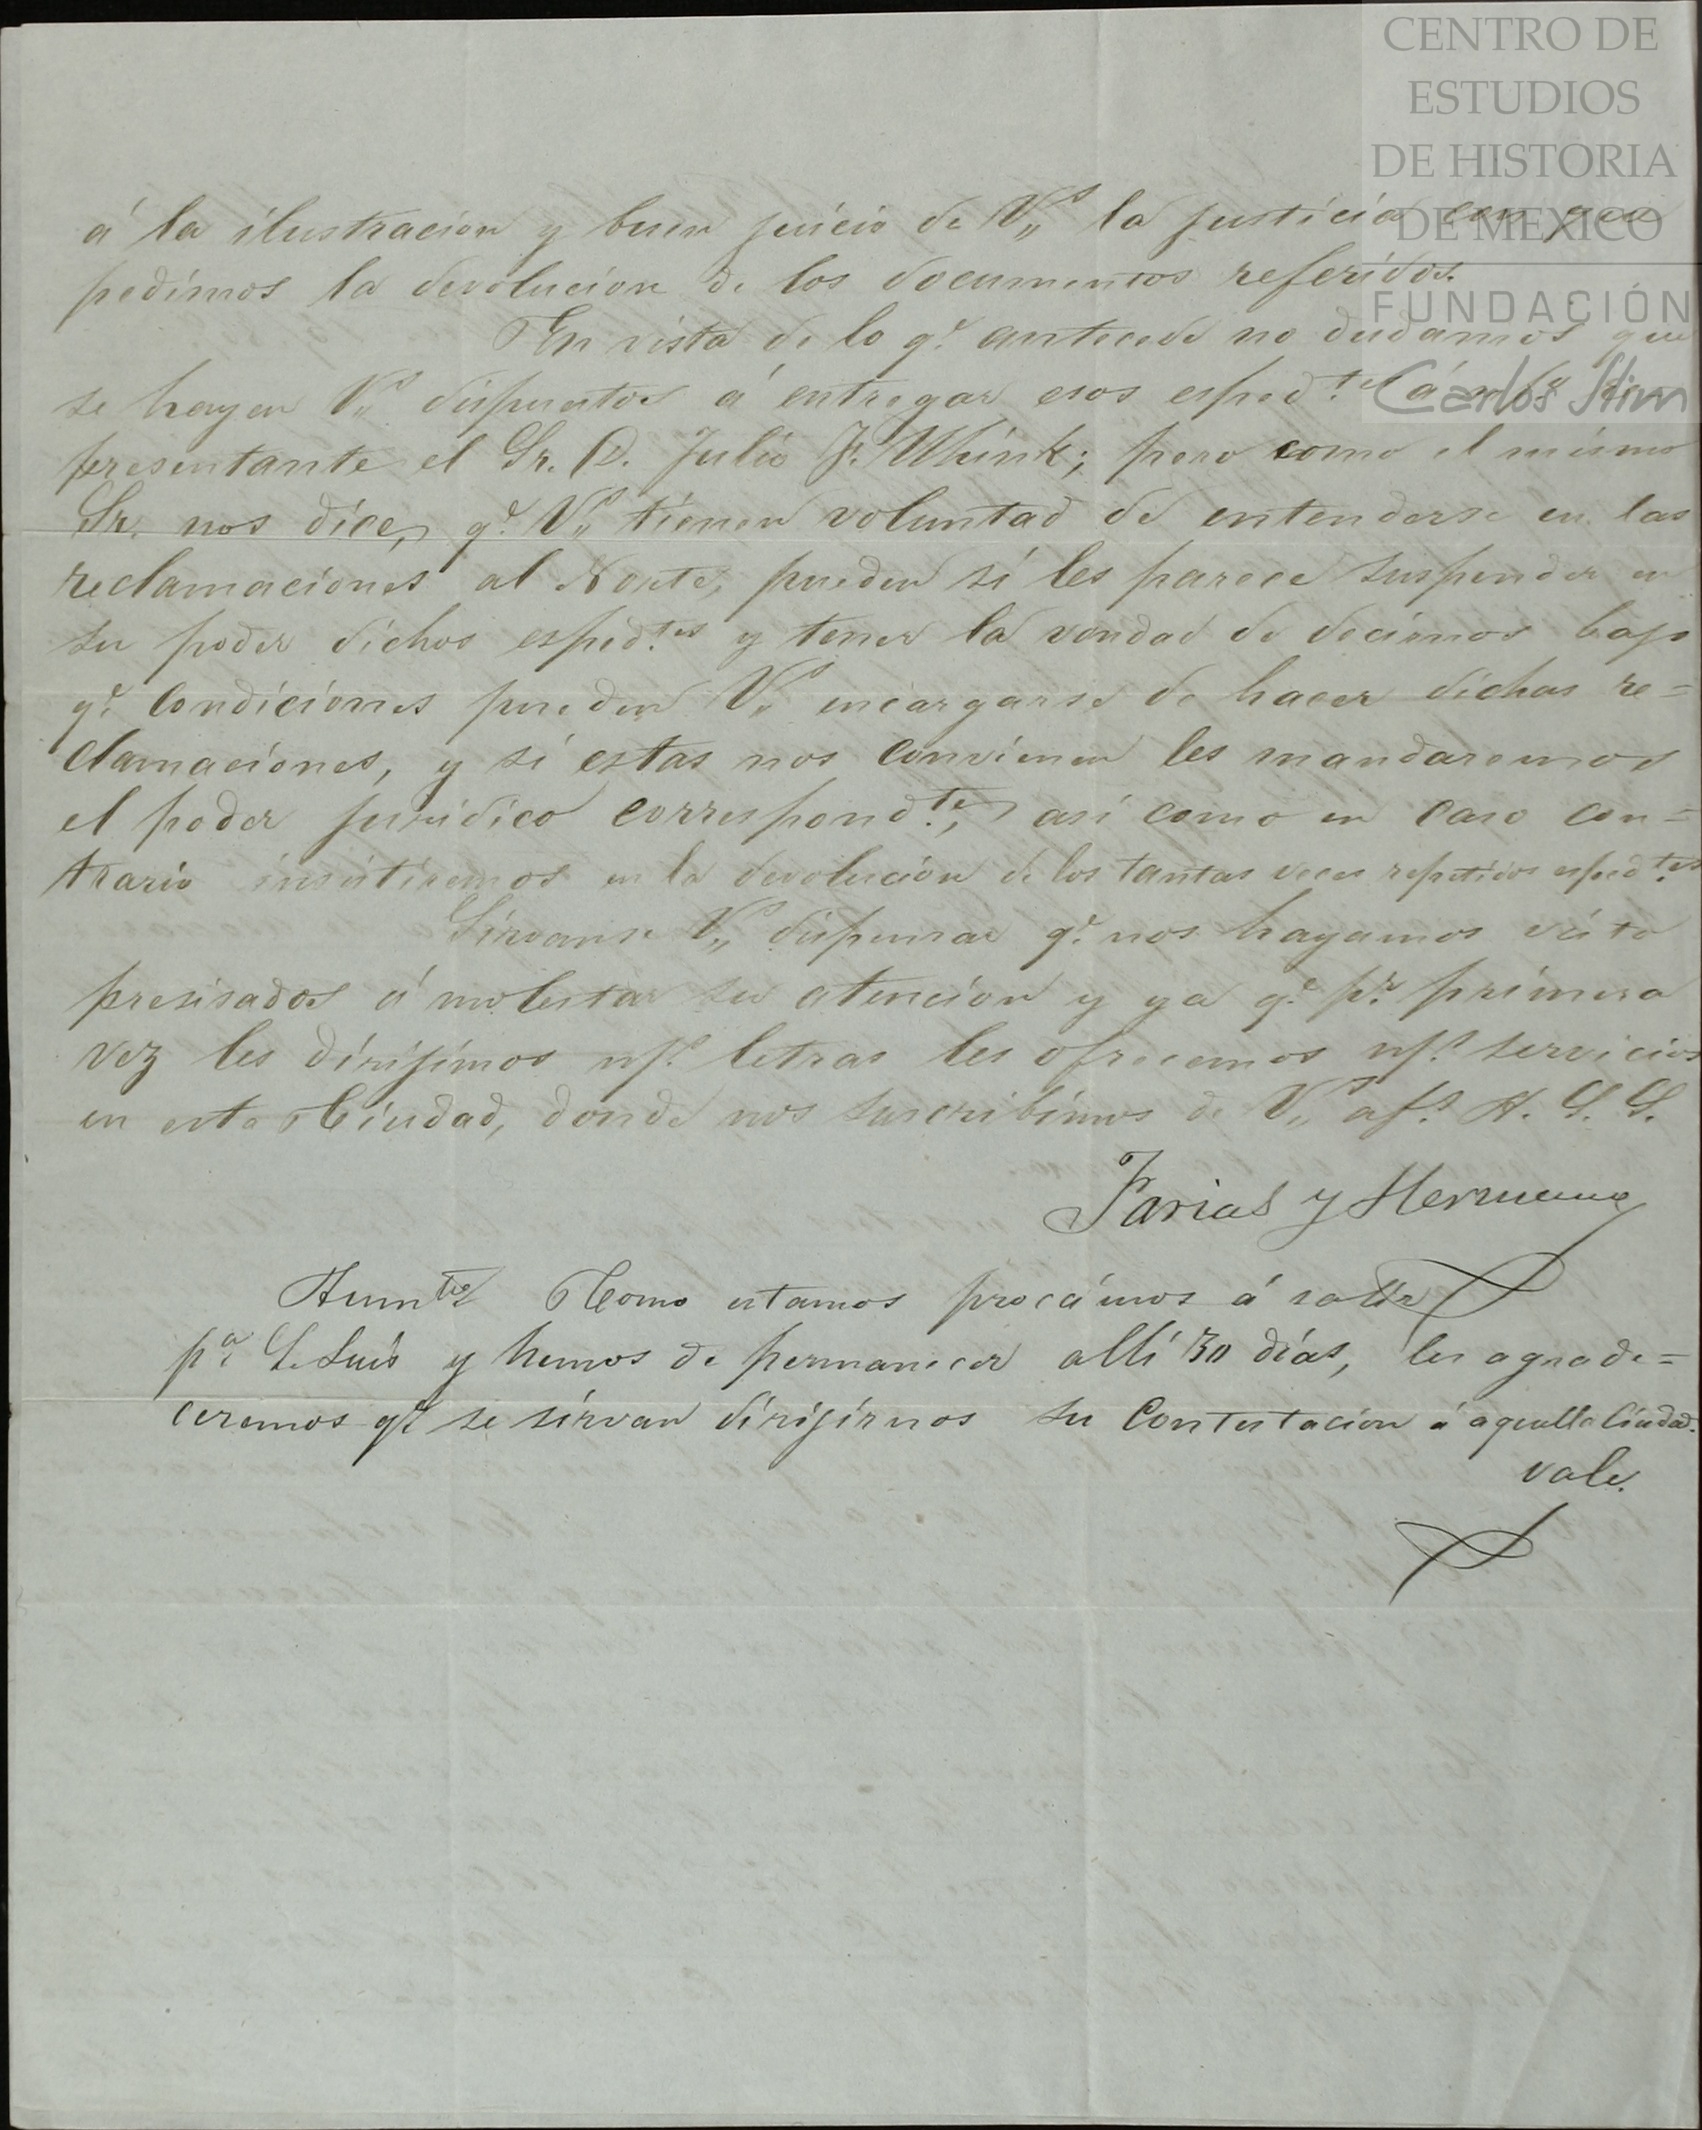 CENTRO DE
ESTUDIOS
DE HISTORIA
DE MEXICO
FUNDACIÓN
Carlos Slim
á la ilustracion y buen juicio de V.s la justicia con que
pedimos la devolucion de los documentos referidos.
En vista de lo q.e antecede no dudamos que
se hayen V.s dispuestos á entregar esos esped.tes á
presentante el Sr. D. Julio F. Uhink; pero como el mismo
Sr. nos dice, q.e V.s tienen voluntad de entenderse en las
reclamaciones al Norte, pueden si les parece suspender en
su poder dichos esped.tes y tener la vondad de decirnos bajo
q.e condiciones pueden V.s encargarse de hacer dichas re=
clamaciones, y si estas nos convienen les mandaremos
el poder juridico correspond.te, asi como en caso con=
trario insistiremos en la devolucion de los tantas veces repetidos esped.tes
Sirvanse V.s dispensar q.e nos hayamos visto
presisados á molestar su atencion y ya q.e p.r primera
vez les dirijimos nts. letras les ofrecemos nts. servicios
en esta Ciudad, donde nos suscribimos de V.s afs. A. S. S.
Farias y Hermano
Aum.to Como estamos procsimos á salir
p.a S. Luis y hemos de permanecer alli 30 dias, les agrade=
ceremos q.e se sirvan dirijirnos su Contestacion á aquella Ciudad.
vale.